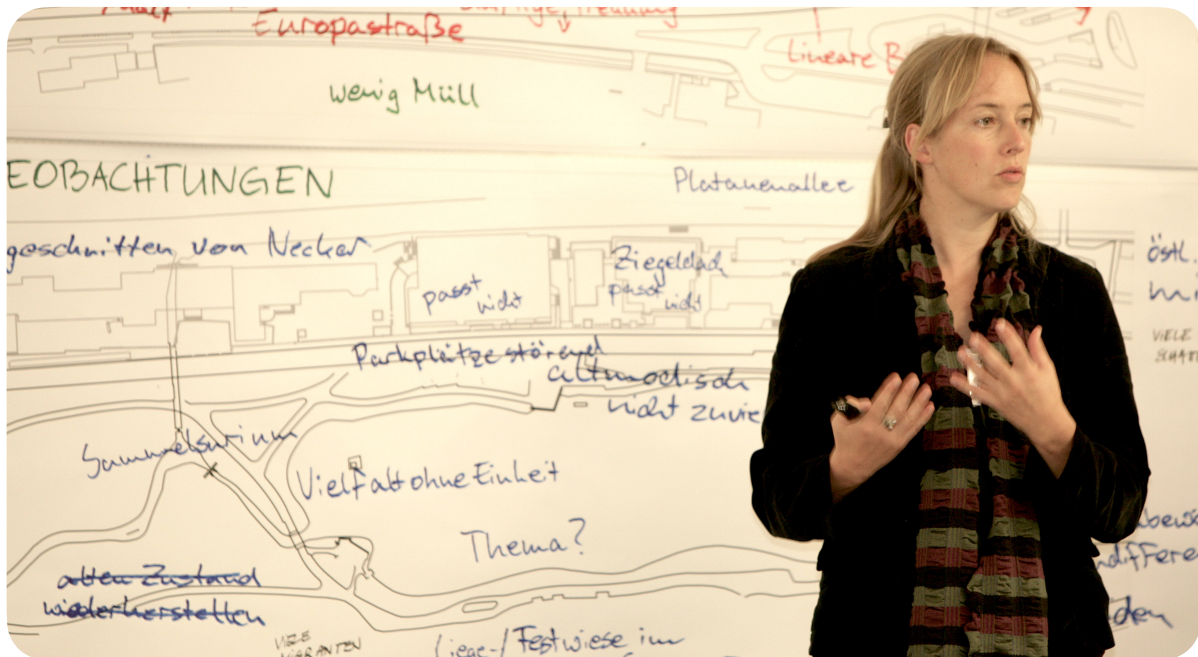 Europastraße
Lineare
wenig Müll
EOBACHTUNGEN
Platanenallee
geschnitten vom Neckar
östl.
passt
nicht
Ziegeldach
passt
nicht
VIELE
Parkplätze störend
altmodisch
nicht zuvie
Sammelsurium
Vielfalt ohne Einheit
Thema?
alten Zustand
wiederherstellen
VIELE
Liege-/Festwiese im